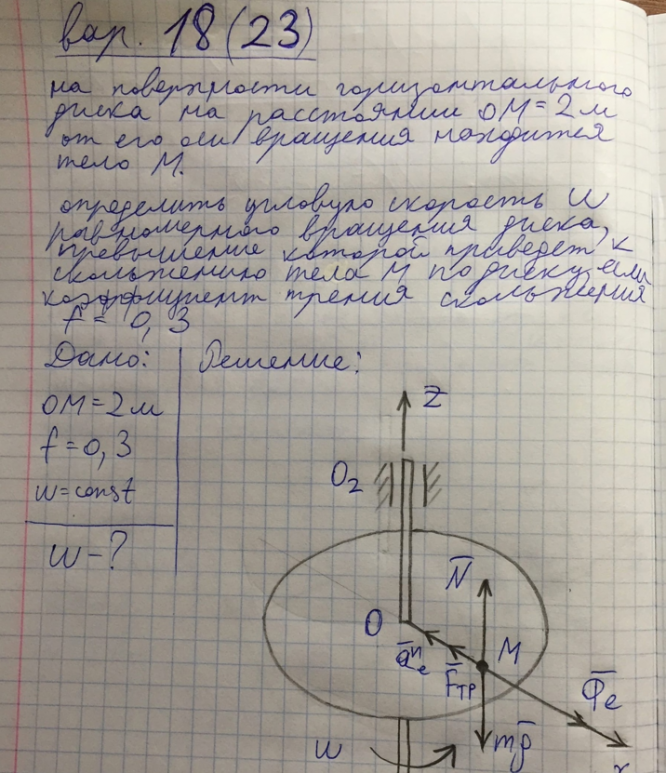 вар. 18(23)
на поверхности горизонтального
диска на расстоянии OM = 2 м
от его оси вращения находится
тело M.
определить угловую скорость ω
равномерного вращения диска,
превышение которой приведет к
скольжению тела M по диску, если
коэффициент трения скольжения
f = 0,3
Дано:
Решение:
OM = 2 м
f = 0,3
ω = const
ω - ?
z
O₂
N̅
O
M
a̅ⁿₑ
F̅тр
Φ̅e
ω
mg̅
x